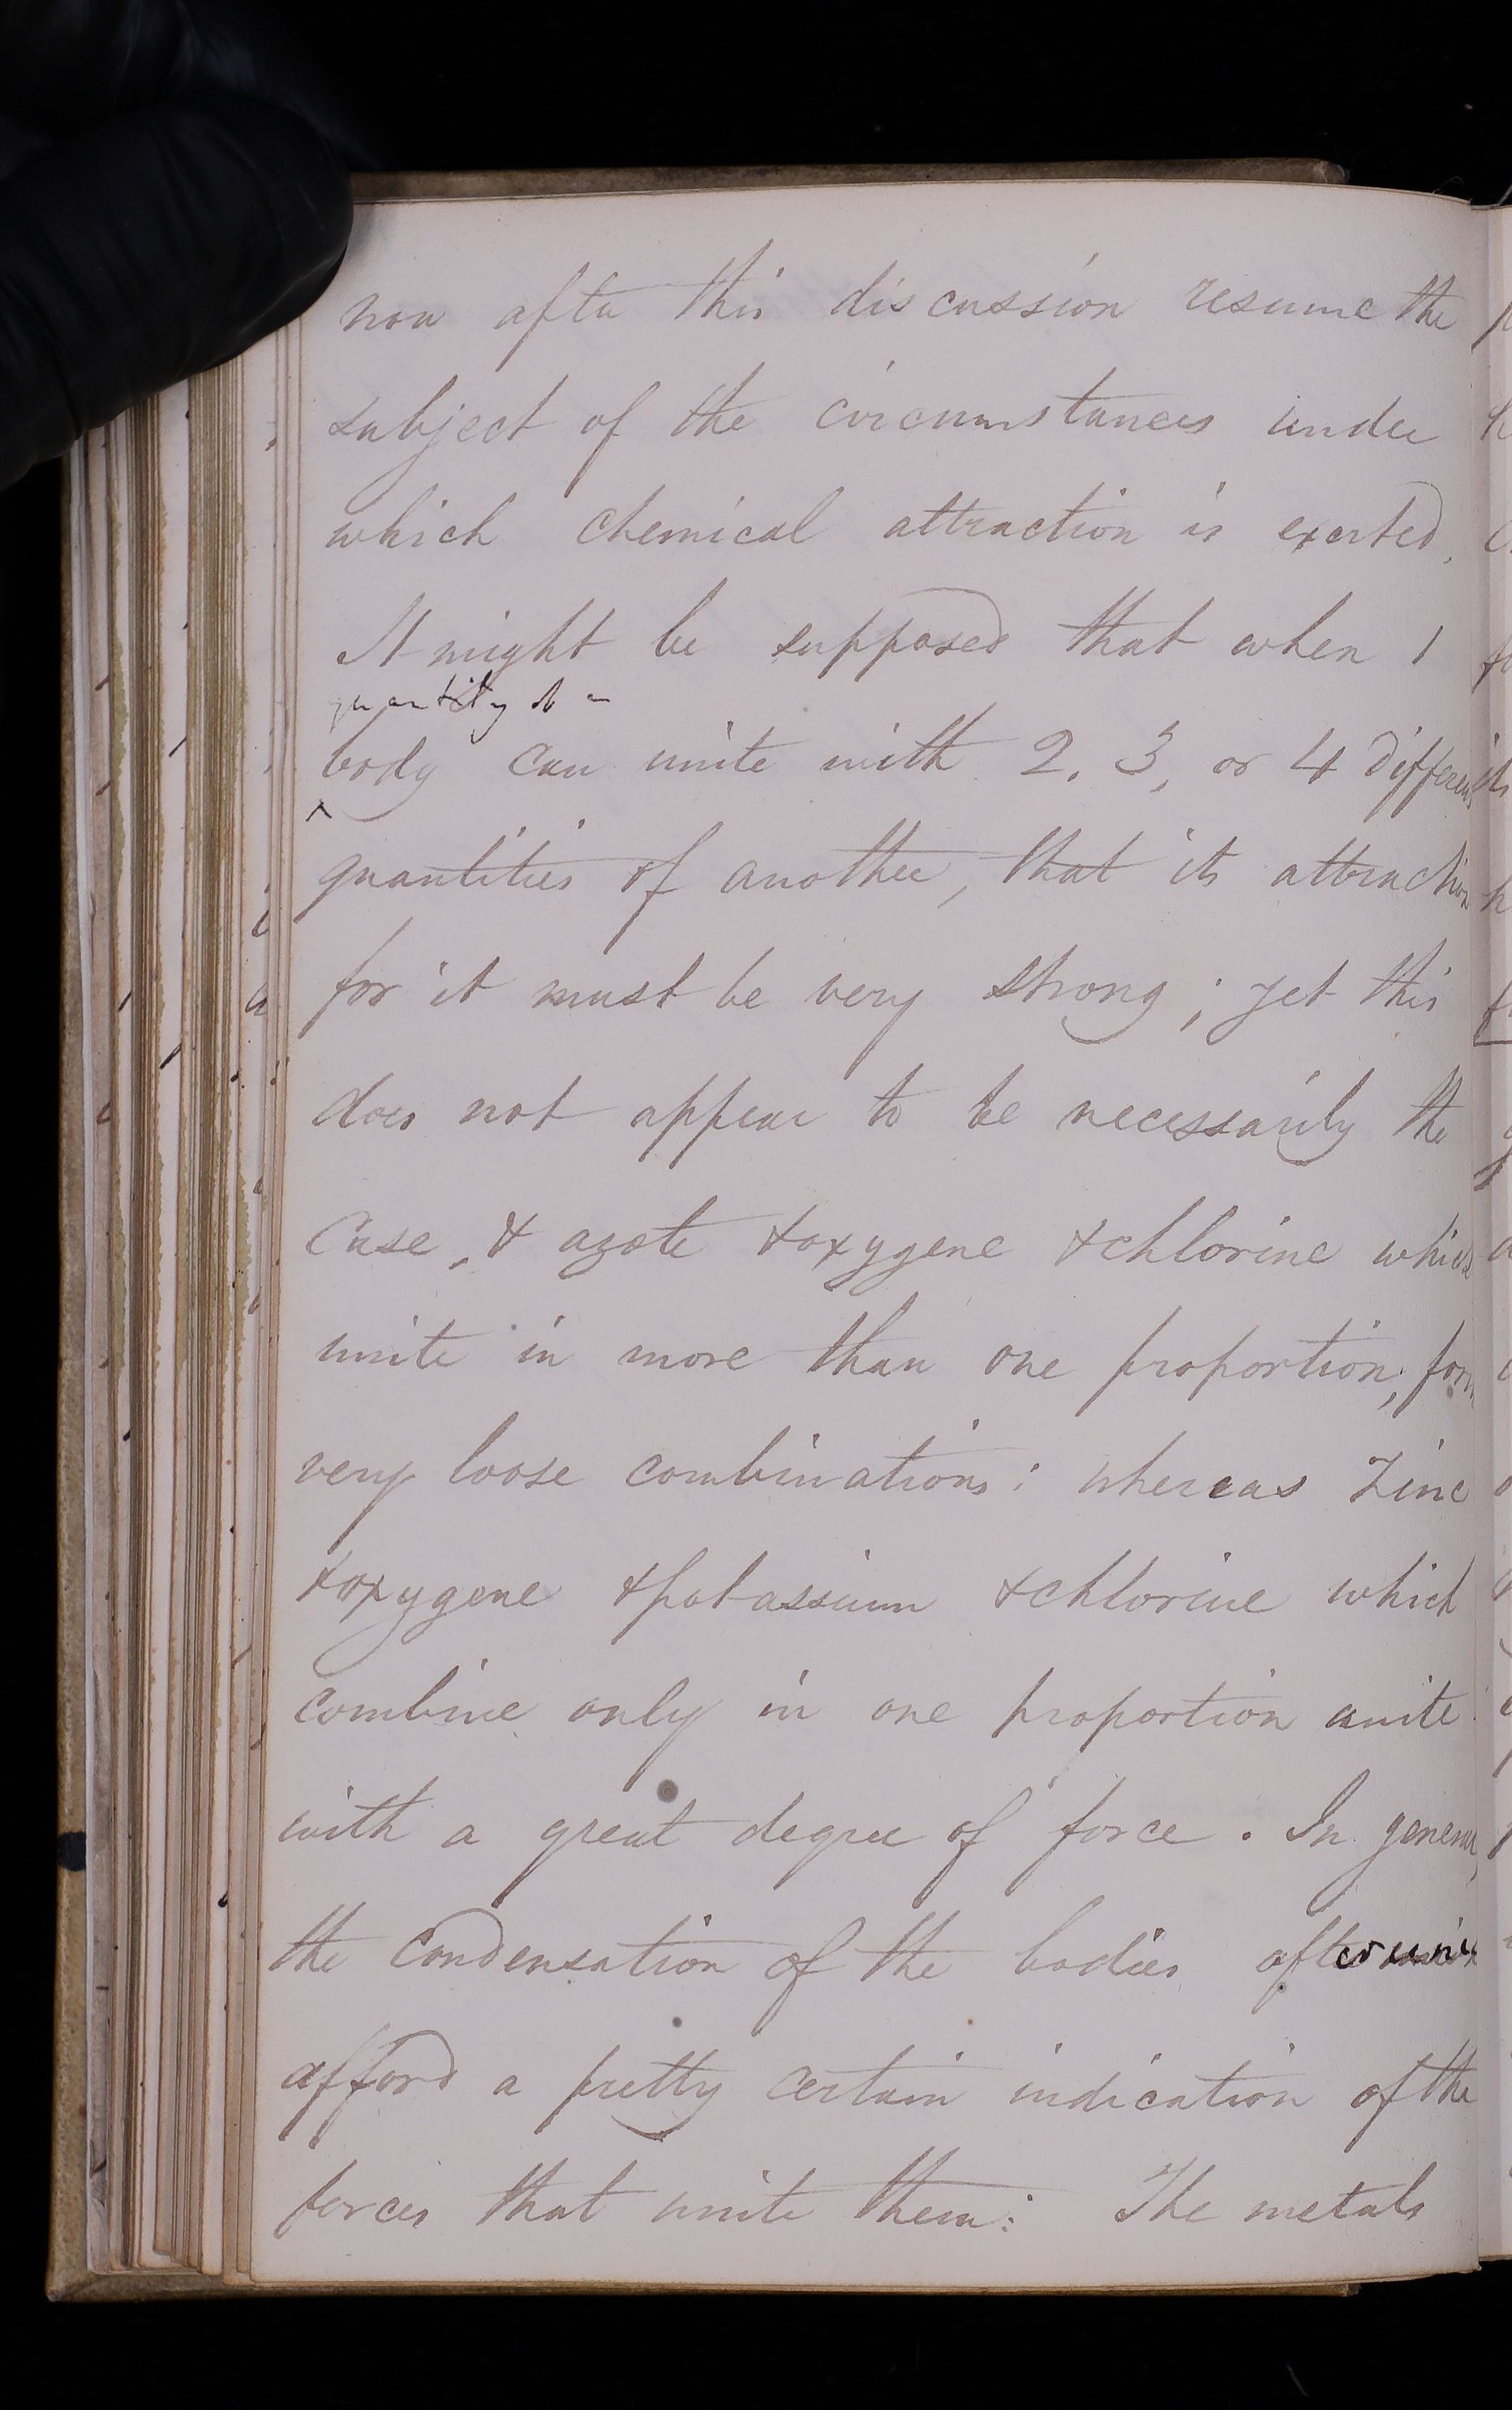 now after this discussion resume the
subject of the circumstances under
which chemical attraction is exerted,
It might be supposed that when 1
quantity of a
body can unite with 2, 3, or 4 different
^
quantities of another, that its attraction
for it must be very strong; yet this
does not appear to be necessarily the
Case, & azote & oxygene & chlorine which
unite in more than one proportion, form
very loose combinations: whereas Zinc
& oxygene & potassium & chlorine which
combine only in one proportion unite
with a great degree of force. In general,
the condensation of the bodies after union
afford a pretty certain indication of the
forces that unite them: The metals